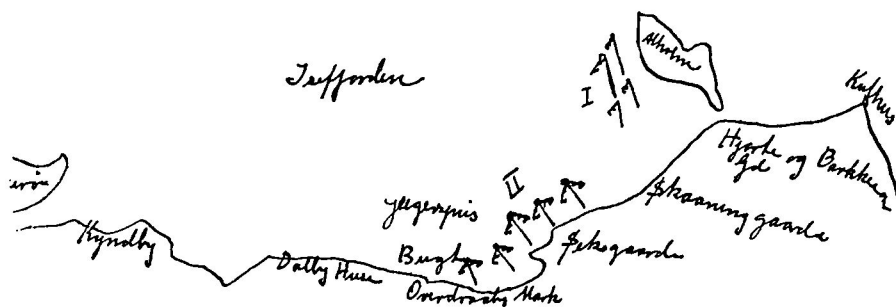 Isefjorden
I
Alholm
Kulhus
Hjorte
Gd og Barkkær
Skaaninggaarde
II
Jægerspris
Bugt
Seksgaarde
Kyndby
Dalby Huse
Overdraaby Mark